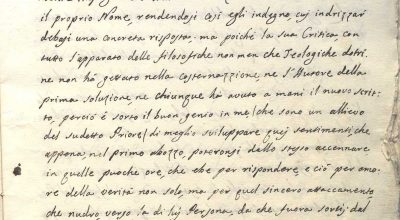 il proprio Nome, rendendosi così egli indegno, cuj indrizzar
debbasi una concreta risposta. ma poiche la sua Critica con
tutto l'apparato delle filosofiche non men che Teologiche dotri-
ne non hà gettato nella costernazzione, ne l'Autore della
prima soluzione, ne chiunque hà avuto a mani il nuovo scrit-
to, perciò è sorto il buon genio in me (che sono un allievo
del sudetto Priore) di meglio sviluppare quej sentimenti, che
appena nel primo abozzo, poteronsi dallo stesso accennare
in quelle puoche ore, che ebe per rispondere, e ciò per amo-
re della verità non solo, ma per quel sincero attaccamento
che nudro verso la di luj Persona, da che fuera sortij dal